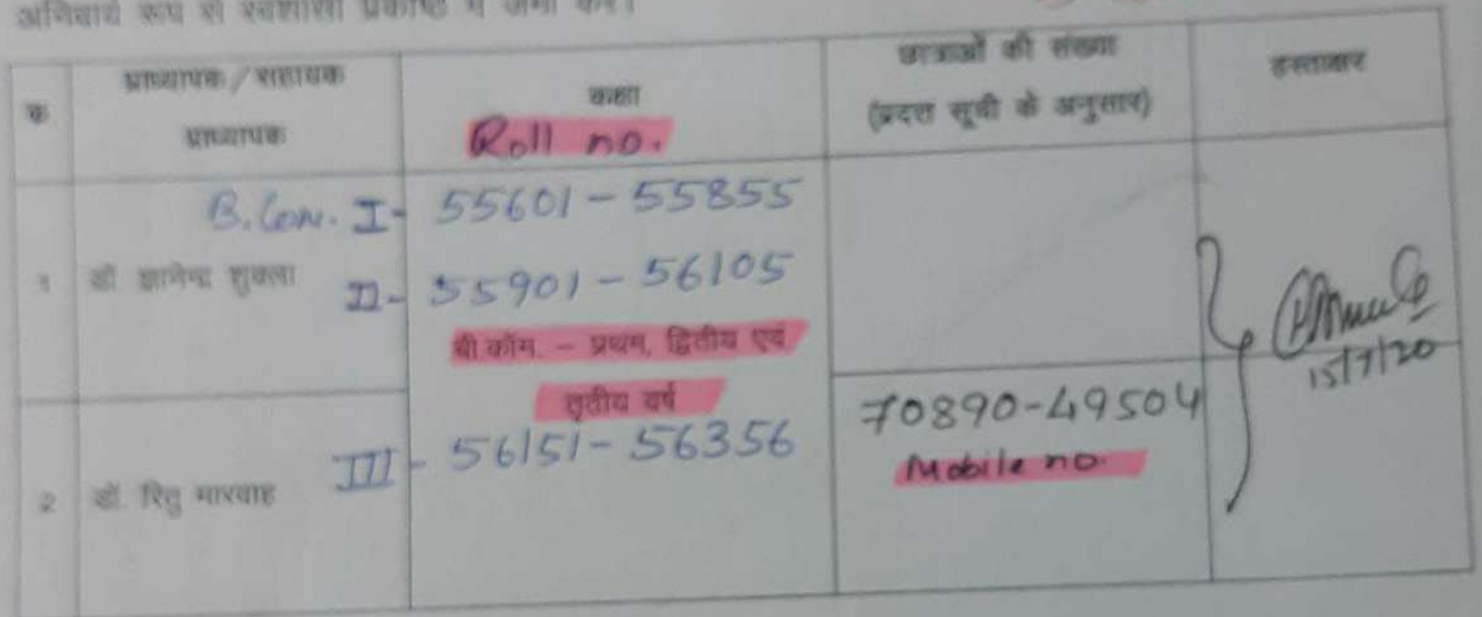 अनिवार्य रूप से स्वशासी प्रकोष्ठ में जमा करें।
क
प्राध्यापक / सहायक
प्राध्यापक
कक्षा
Roll no.
छात्राओं की संख्या
(प्रदत्त सूची के अनुसार)
हस्ताक्षर
१
डॉ ज्ञानेन्द्र शुक्ला
B.Com. I - 55601 - 55855
II - 55901 - 56105
बी.कॉम. – प्रथम, द्वितीय एवं
तृतीय वर्ष
15/7/20
२
डॉ. रितु मारवाह
III - 56151 - 56356
70890-49504
Mobile no.